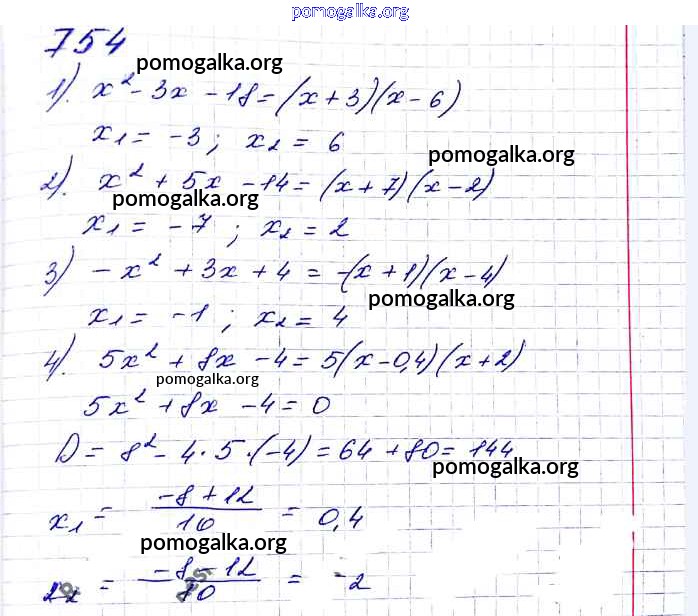 pomogalka.org
754
pomogalka.org
1). x² - 3x - 18 = (x + 3)(x - 6)
x₁ = -3; x₂ = 6
pomogalka.org
2). x² + 5x - 14 = (x + 7)(x - 2)
pomogalka.org
x₁ = -7; x₂ = 2
3) -x² + 3x + 4 = -(x + 1)(x - 4)
pomogalka.org
x₁ = -1; x₂ = 4
4). 5x² + 8x - 4 = 5(x - 0,4)(x + 2)
pomogalka.org
5x² + 8x - 4 = 0
D = 8² - 4 · 5 · (-4) = 64 + 80 = 144
pomogalka.org
x₁ = (-8 + 12)/10 = 0,4
pomogalka.org
x₂ = (-8 - 12)/10 = -2